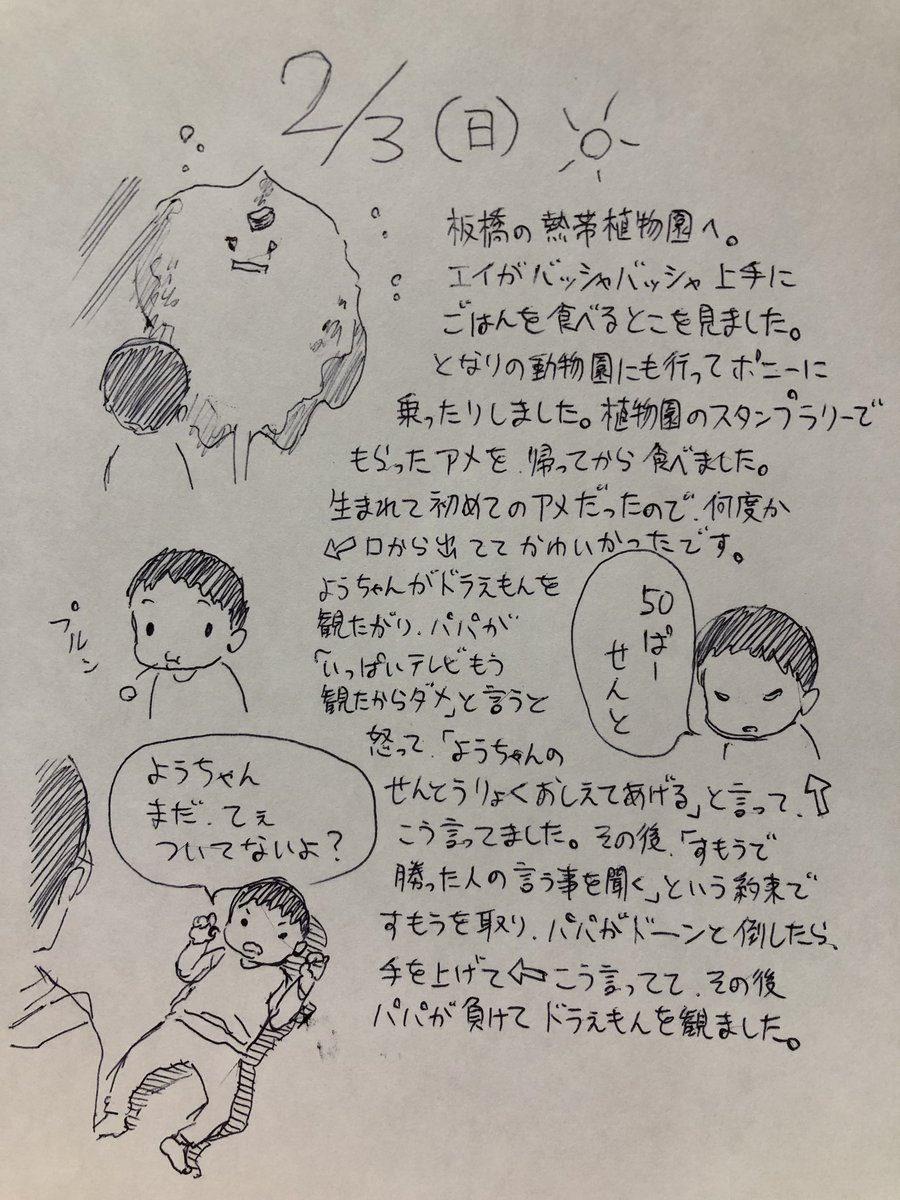 2/3(日)
板橋の熱帯植物園へ。
エイがバッシャバッシャ上手に
ごはんを食べるとこを見ました。
となりの動物園にも行ってポニーに
乗ったりしました。植物園のスタンプラリーで
もらったアメを、帰ってから食べました。
生まれて初めてのアメだったので、何度か
⇦口から出ててかわいかったです。
プルン
ようちゃんがドラえもんを
観たがり、パパが
「いっぱいテレビもう
観たからダメ」と言うと
怒って、「ようちゃんの
せんとうりょくおしえてあげる」と言って、⇧
50ぱー
せんと
こう言ってました。その後、「すもうで
勝った人の言う事を聞く」という約束で
すもうを取り、パパがドーンと倒したら、
手を上げて⇦こう言ってて、その後
パパが負けてドラえもんを観ました。
ようちゃん
まだ、てぇ
ついてないよ?